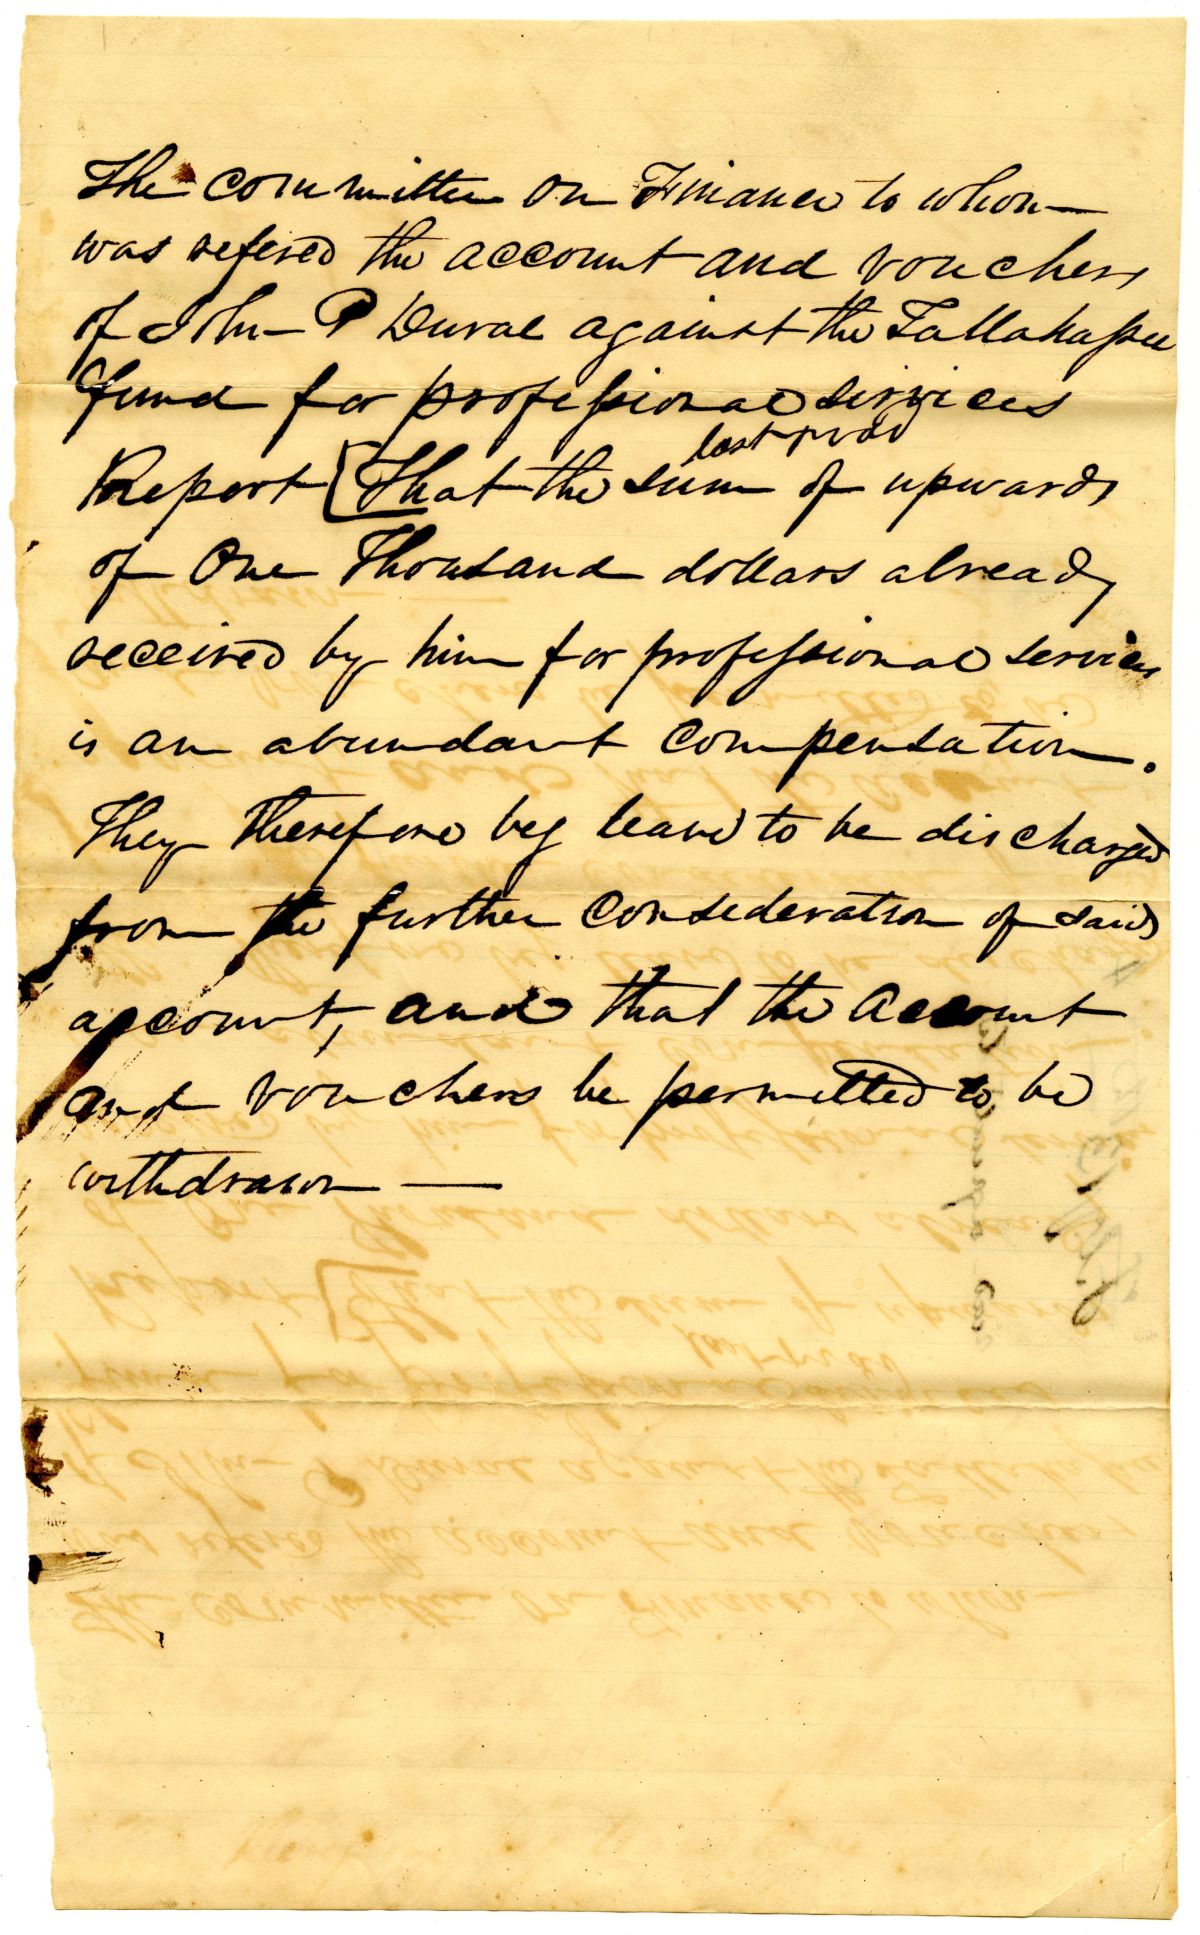 The committee on Finance to whom
was refered the account and vouchers
of John P Duval against the Tallahassee
fund for professional services
last year
Report [That the sum of upwards
of One Thousand dollars already
received by him for professional services
is an abundant compensation.
They therefore beg leave to be discharged
from the further consideration of said
account, and that the account
and vouchers be permitted to be
withdrawn —